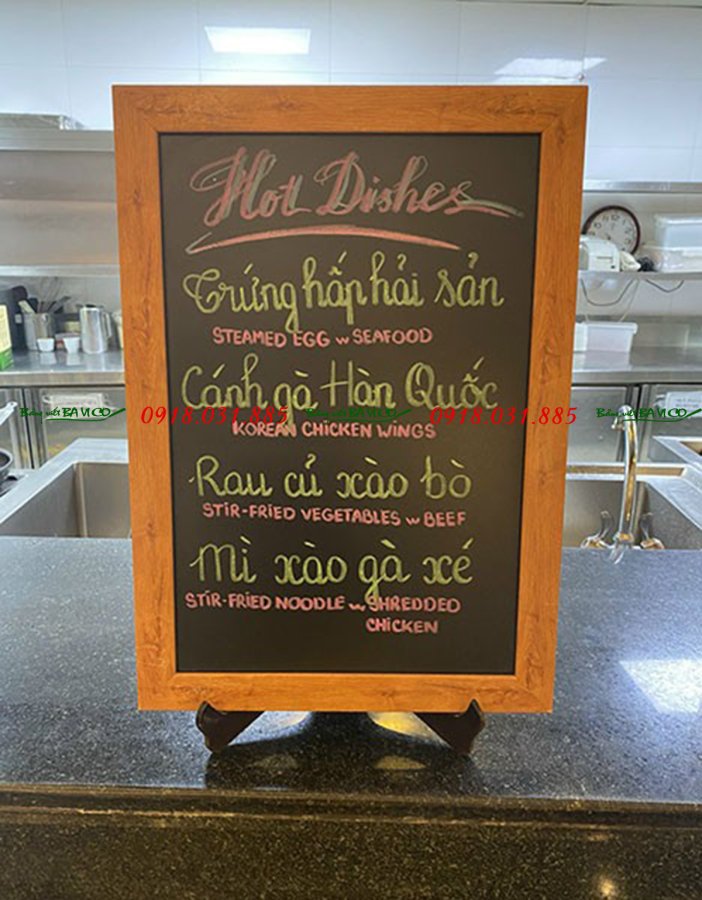 Hot Dishes
Trứng hấp hải sản
STEAMED EGG w SEAFOOD
Cánh gà Hàn Quốc
Bảng viết BAVICO 0918.031.885 Bảng viết BAVICO 0918.031.885 Bảng viết BAVICO
KOREAN CHICKEN WINGS
Rau củ xào bò
STIR-FRIED VEGETABLES w BEEF
Mì xào gà xé
STIR-FRIED NOODLE w SHREDDED
CHICKEN